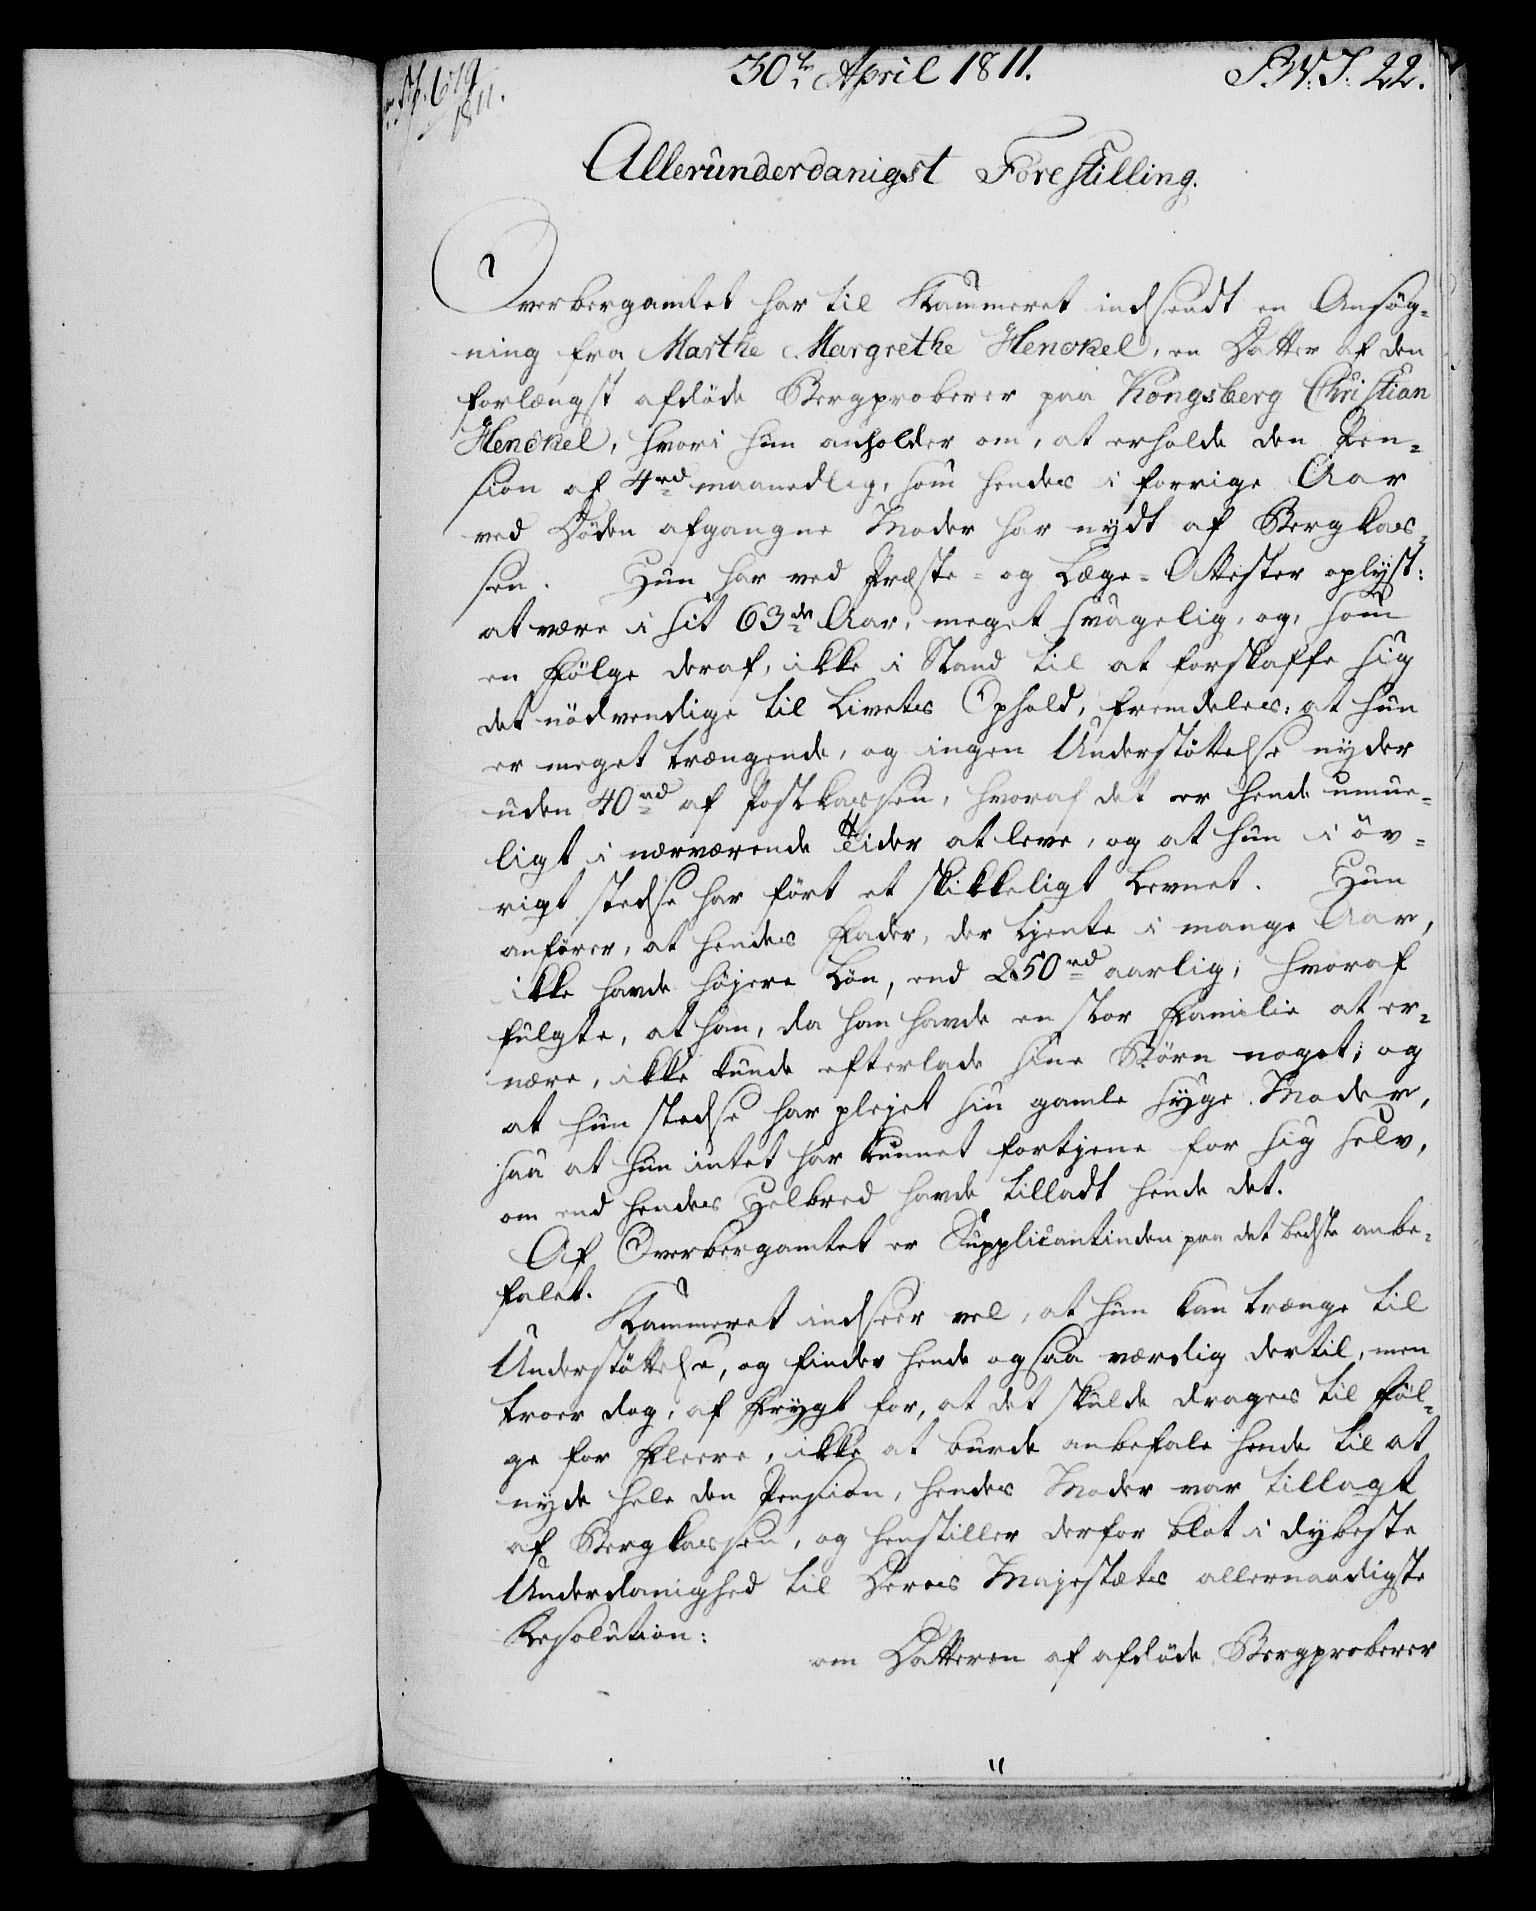 30te April 1811.
B.V.T. 22.
679
1811.
Allerunderdanigst Forestilling.
Overbergamtet har til Kammeret indsendt en Ansøg-
ning fra Marthe Margrethe Henckel, en Datter af den
forlængst afdøde Bergproberer paa Kongsberg Christian
Henckel, hvori hun anholder om, at erholde den Pen-
sion af 4 rd maanedlig, som hendes i forrige Aar
ved Døden afgangne Moder har nydt af Bergkas-
sen. Hun har ved Præste- og Læge-Attester oplyst:
at være i sit 63de Aar, meget svagelig, og, som
en Følge deraf, ikke i Stand til at forskaffe sig
det nødvendige til Livets Ophold, fremdeles: at hun
er meget trængende, og ingen Understøttelse nyder
uden 40 rd af Postkassen, hvoraf det er hende umue-
ligt i nærværende Tider at leve, og at hun i øv-
rigt stedse har ført et skikkeligt Levnet. Hun
anfører, at hendes Fader, der tjente i mange Aar,
ikke havde højere Løn, end 250 rd aarlig, hvoraf
fulgte, at han, da han havde en stor Familie at er-
nære, ikke kunde efterlade sine Børn noget; og
at hun stedse har plejet sin gamle syge Moder,
saa at hun intet har kunnet fortjene for sig selv,
om end hendes Helbred havde tilladt hende det.
Af Overbergamtet er Supplicantinden paa det bedste anbe-
falet.
Kammeret indseer vel, at hun kan trænge til
Understøttelse, og finder hende ogsaa værdig dertil, men
troer dog, af Frygt for, at det skulde drages til Føl-
ge for Fleere, ikke at burde anbefale hende til at
nyde hele den Pension, hendes Moder var tillagt
af Bergkassen, og henstiller derfor blot i dybeste
Underdanighed til Deres Majestæts allernaadigste
Resolution:
om Datteren af afdøde Bergproberer